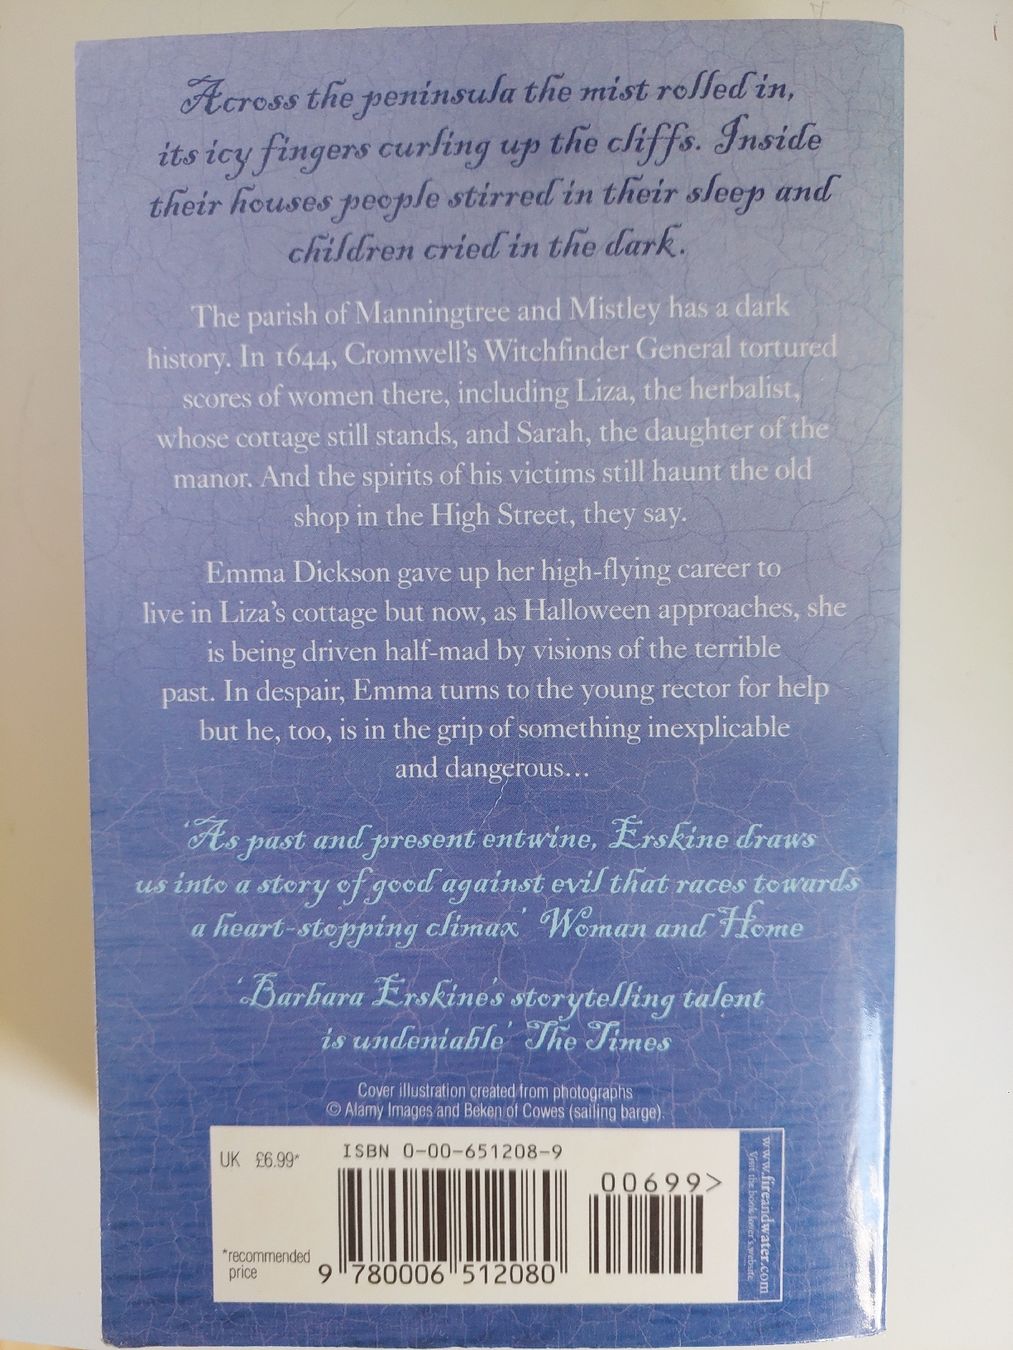 Across the peninsula the mist rolled in,
its icy fingers curling up the cliffs. Inside
their houses people stirred in their sleep and
children cried in the dark.
The parish of Manningtree and Mistley has a dark
history. In 1644, Cromwell's Witchfinder General tortured
scores of women there, including Liza, the herbalist,
whose cottage still stands, and Sarah, the daughter of the
manor. And the spirits of his victims still haunt the old
shop in the High Street, they say.
Emma Dickson gave up her high-flying career to
live in Liza's cottage but now, as Halloween approaches, she
is being driven half-mad by visions of the terrible
past. In despair, Emma turns to the young rector for help
but he, too, is in the grip of something inexplicable
and dangerous...
'As past and present entwine, Erskine draws
us into a story of good against evil that races towards
a heart-stopping climax' Woman and Home
'Barbara Erskine's storytelling talent
is undeniable' The Times
Cover illustration created from photographs
© Alamy Images and Beken of Cowes (sailing barge).
UK £6.99*
ISBN 0-00-651208-9
00699>
*recommended
price
9 780006 512080
www.fireandwater.com
Visit the book lover's website